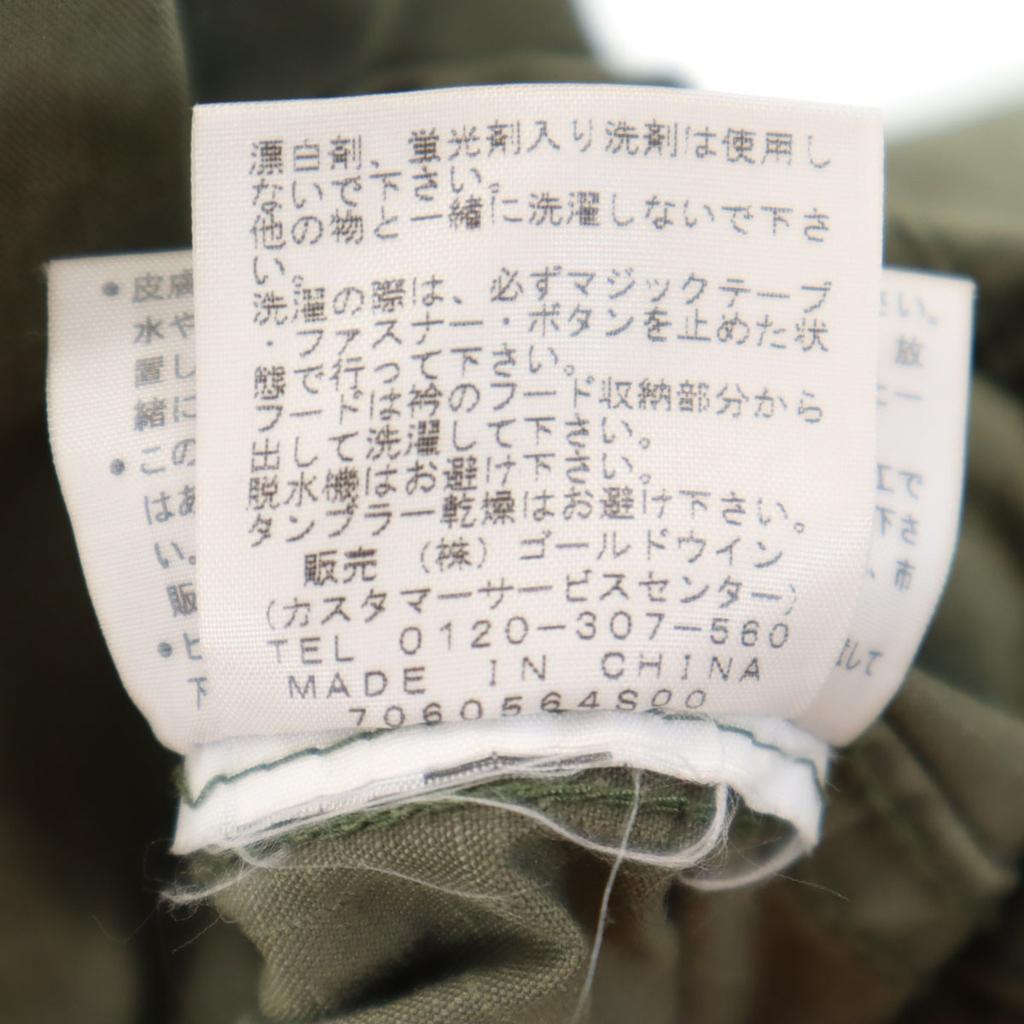 漂白剤、蛍光剤入り洗剤は使用し
ないで下さい。
他の物と一緒に洗濯しないで下さ
い。
洗濯の際は、必ずマジックテープ
・ファスナー・ボタンを止めた状
態で行って下さい。
フードは衿のフード収納部分から
出して洗濯して下さい。
脱水機はお避け下さい。
タンブラー乾燥はお避け下さい。
販売 (株)ゴールドウイン
(カスタマーサービスセンター)
TEL 0120-307-560
MADE IN CHINA
7060564S00
●皮膚
水や
置し
緒に
●この
はあ
い。
販
●ヒ
下
さい。
放
ニー
で
下さ
、市
して